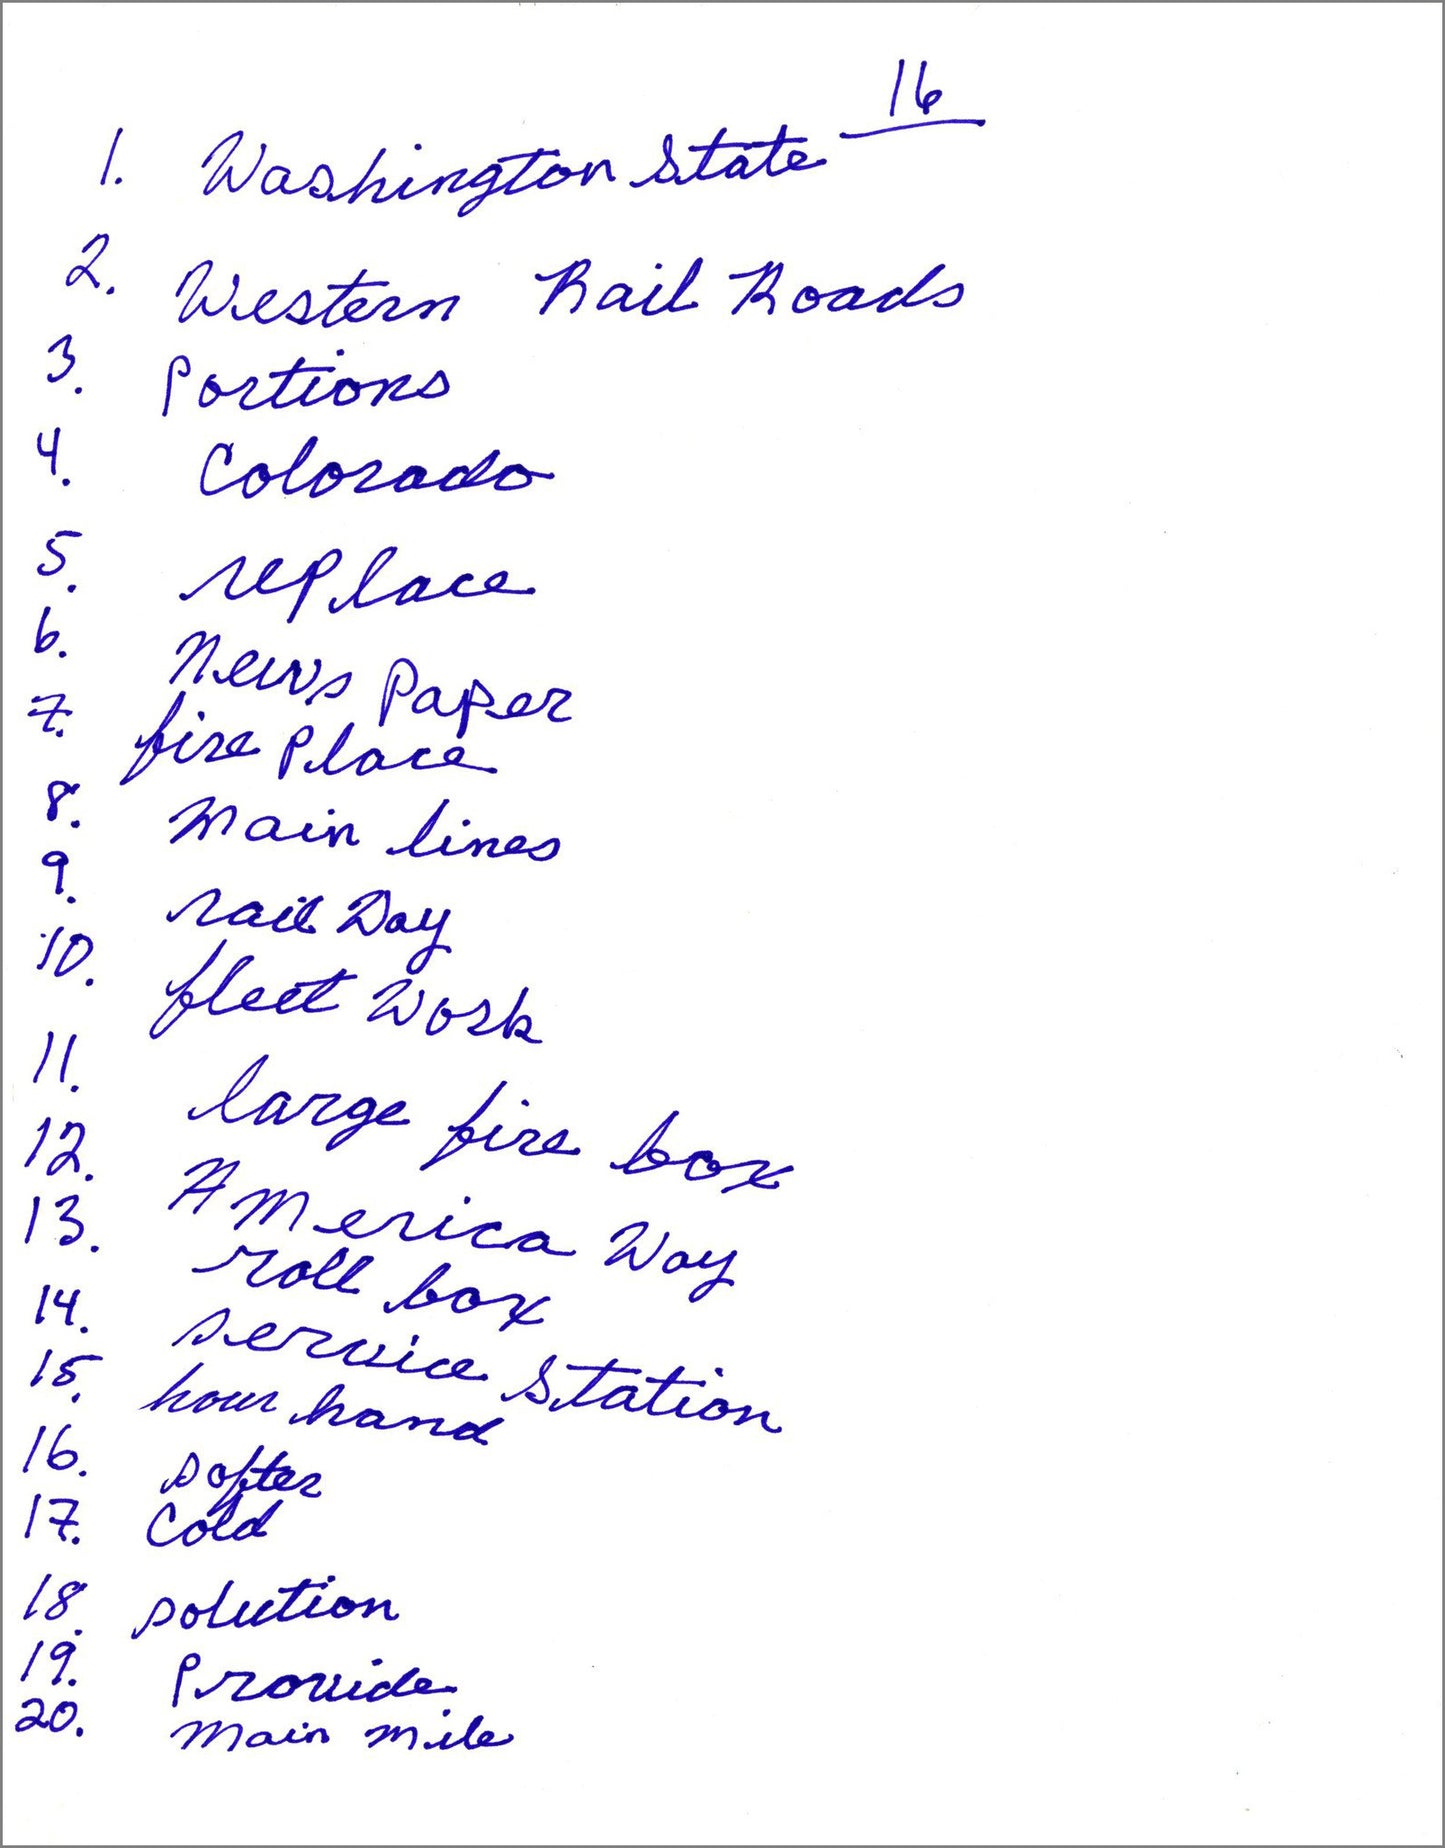 16
1. Washington State
2. Western Rail Roads
3. Portions
4. Colorado
5. replace
6. News Paper
7. fire Place
8. Main lines
9. rail Day
10. fleet Work
11. large fire box
12. America Way
13. roll box
14. service station
15. hour hand
16. softer
17. Cold
18. solution
19. Provide
20. Main mile